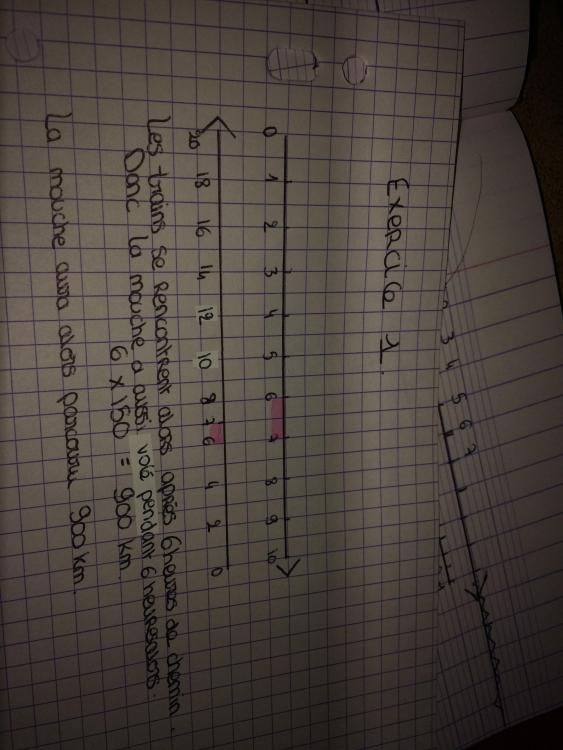 Exercice 1.
0 1 2 3 4 5 6 7 8 9 10
20 18 16 14 12 10 8 7 6 4 2 0
Les trains se rencontrent alors après 6 heures de chemin.
Donc la mouche a aussi volé pendant 6 heures
6 x 150 = 900 km.
La mouche aura alors parcouru 900 km.
3 4 5 6 7